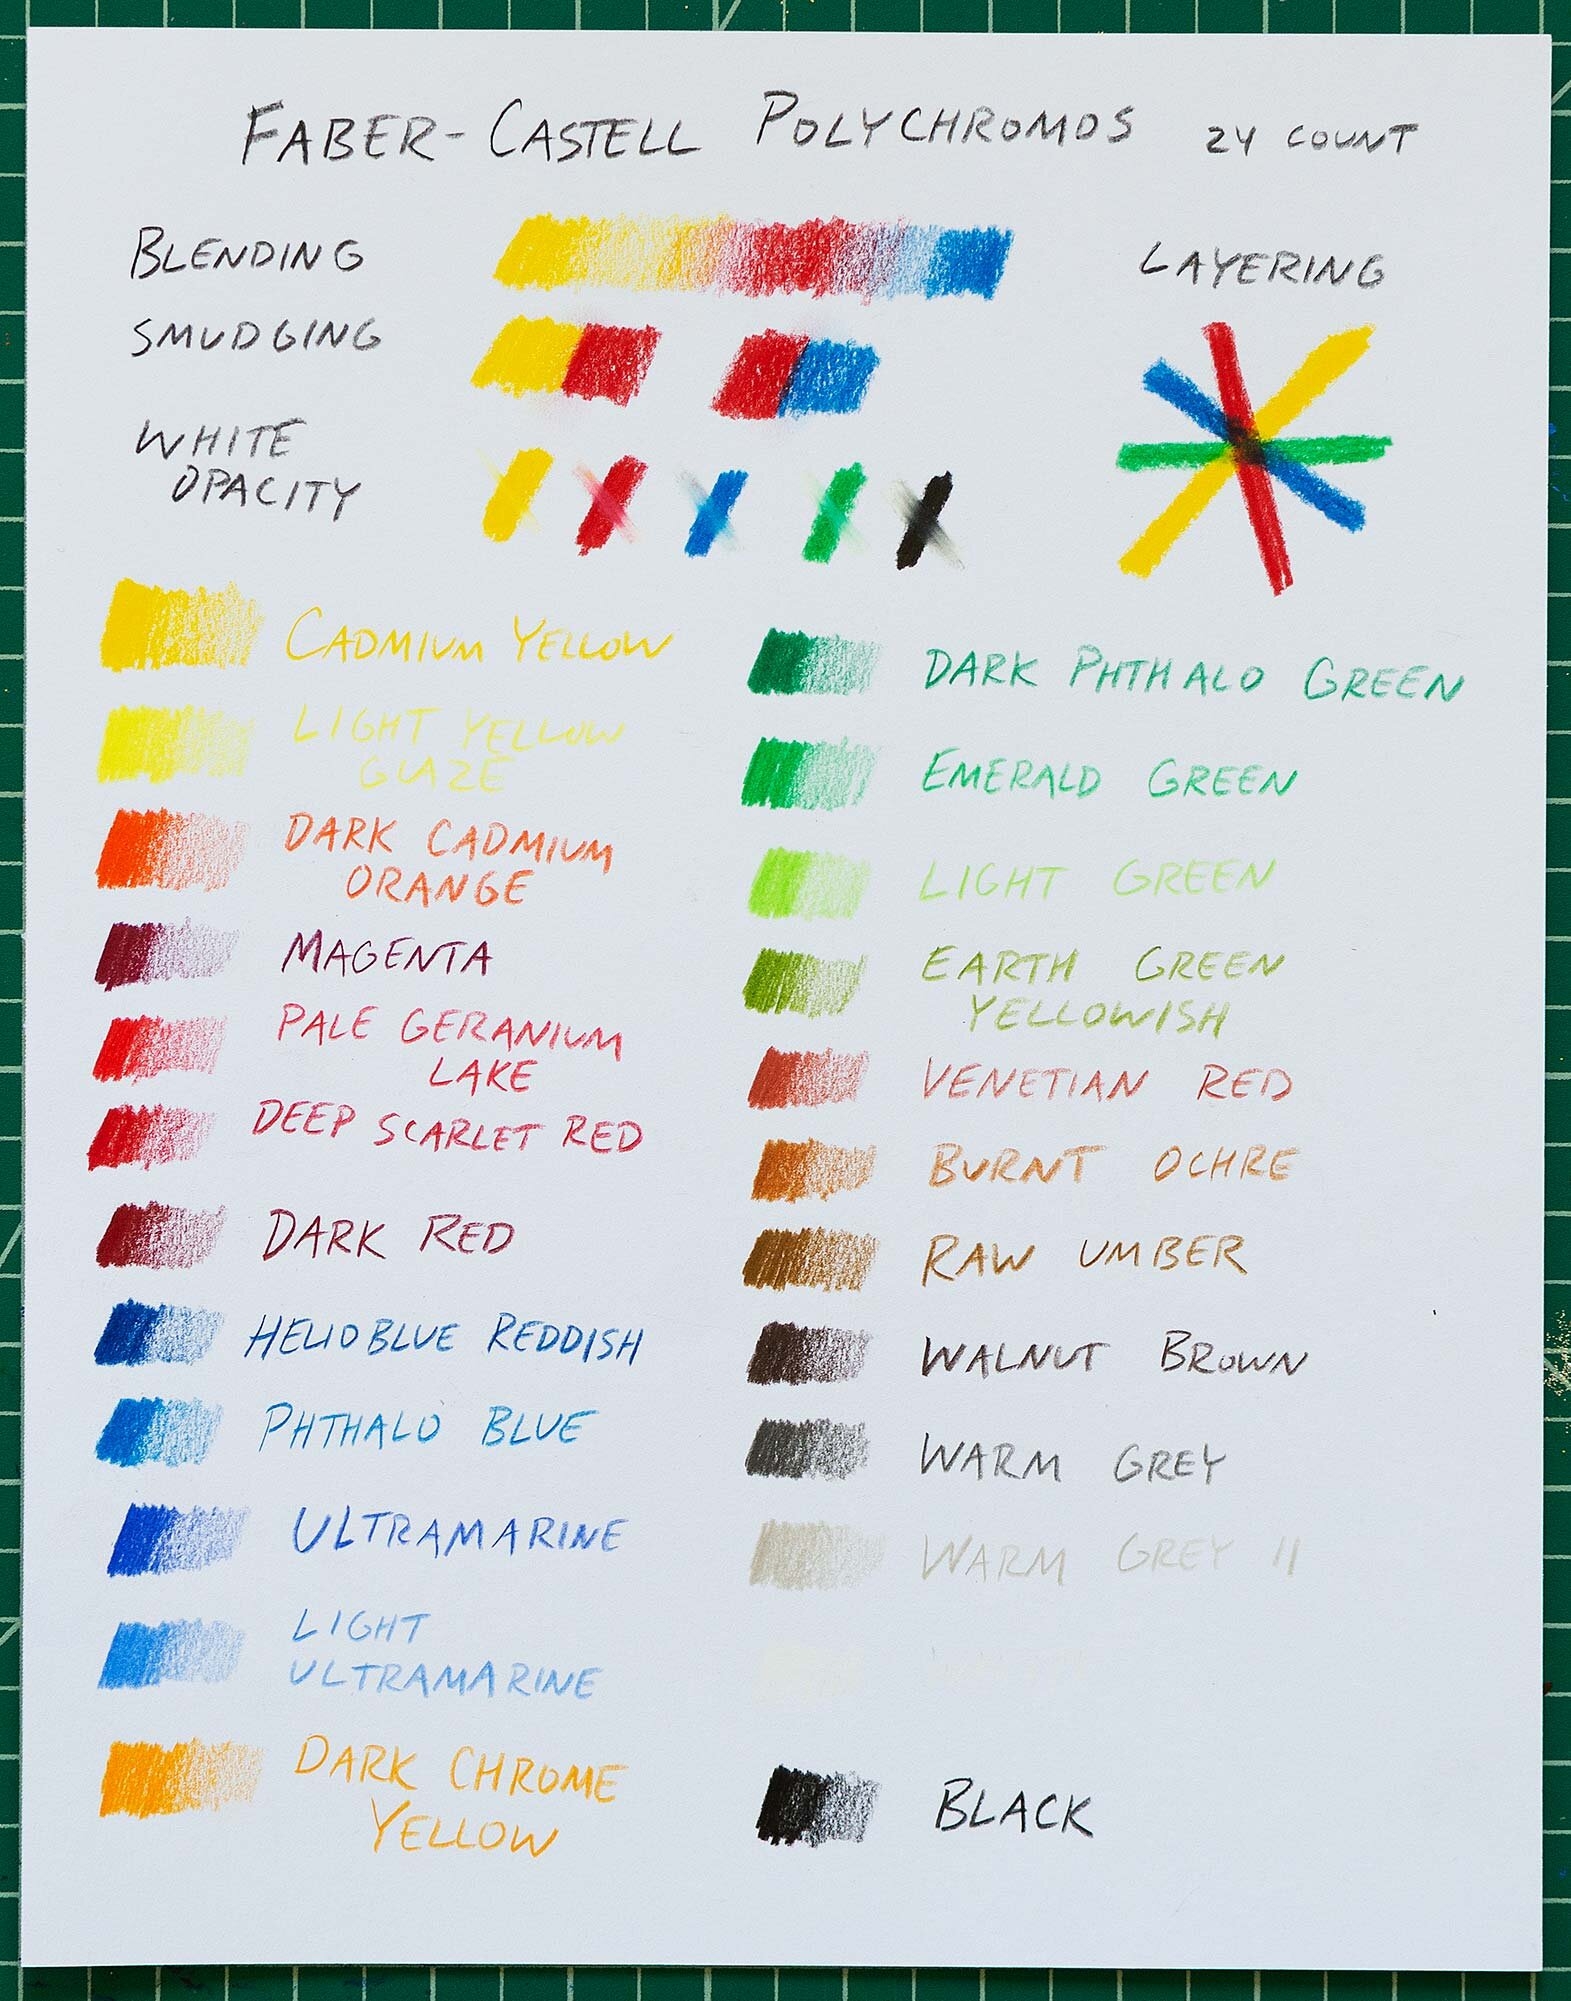 FABER-CASTELL POLYCHROMOS 24 COUNT
BLENDING
LAYERING
SMUDGING
WHITE
OPACITY
CADMIUM YELLOW
LIGHT YELLOW
GLAZE
DARK CADMIUM
ORANGE
MAGENTA
PALE GERANIUM
LAKE
DEEP SCARLET RED
DARK RED
HELIOBLUE REDDISH
PHTHALO BLUE
ULTRAMARINE
LIGHT
ULTRAMARINE
DARK CHROME
YELLOW
DARK PHTHALO GREEN
EMERALD GREEN
LIGHT GREEN
EARTH GREEN
YELLOWISH
VENETIAN RED
BURNT OCHRE
RAW UMBER
WALNUT BROWN
WARM GREY
WARM GREY II
BLACK